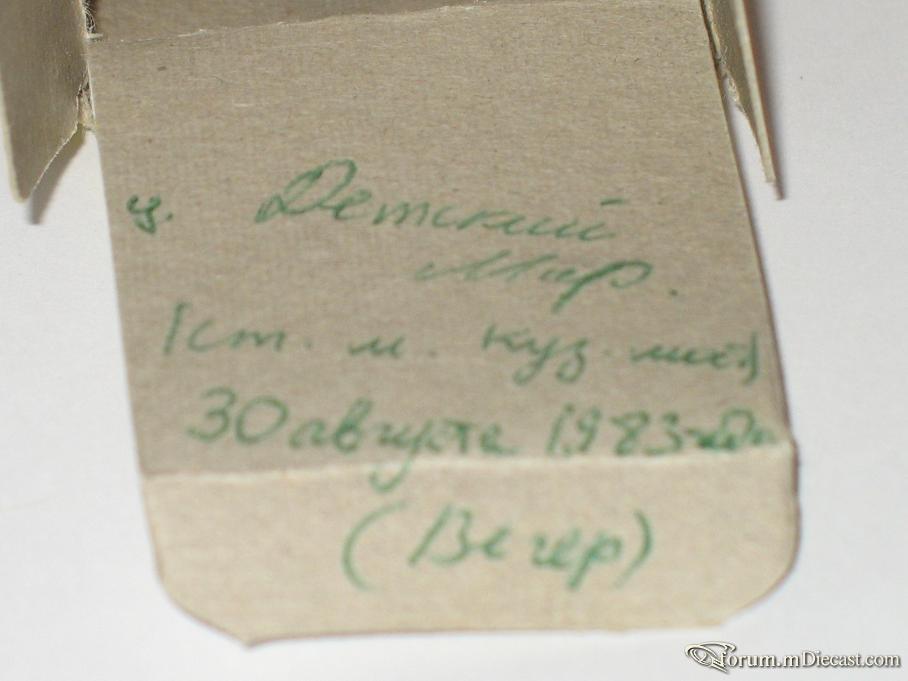 ц. Детский
Мир.
(ст. м. куз. мост)
30 августа 1983 года
(Вечер)
Forum.mDiecast.com